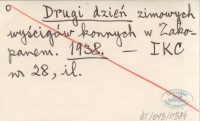 Drugi dzień zimowych
wyścigów konnych w Zako-
panem. 1938. — IKC
nr 28, il.